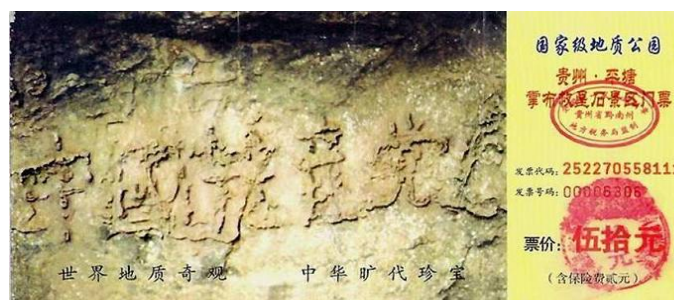 中國共产党亡
世界地质奇观 中华旷代珍宝
国家级地质公园
贵州·平塘
掌布救星石景区门票
贵州省黔南州
地方税务局监制
发票代码:25227055811
发票号码:00006306
票价:伍拾元
(含保险费贰元)